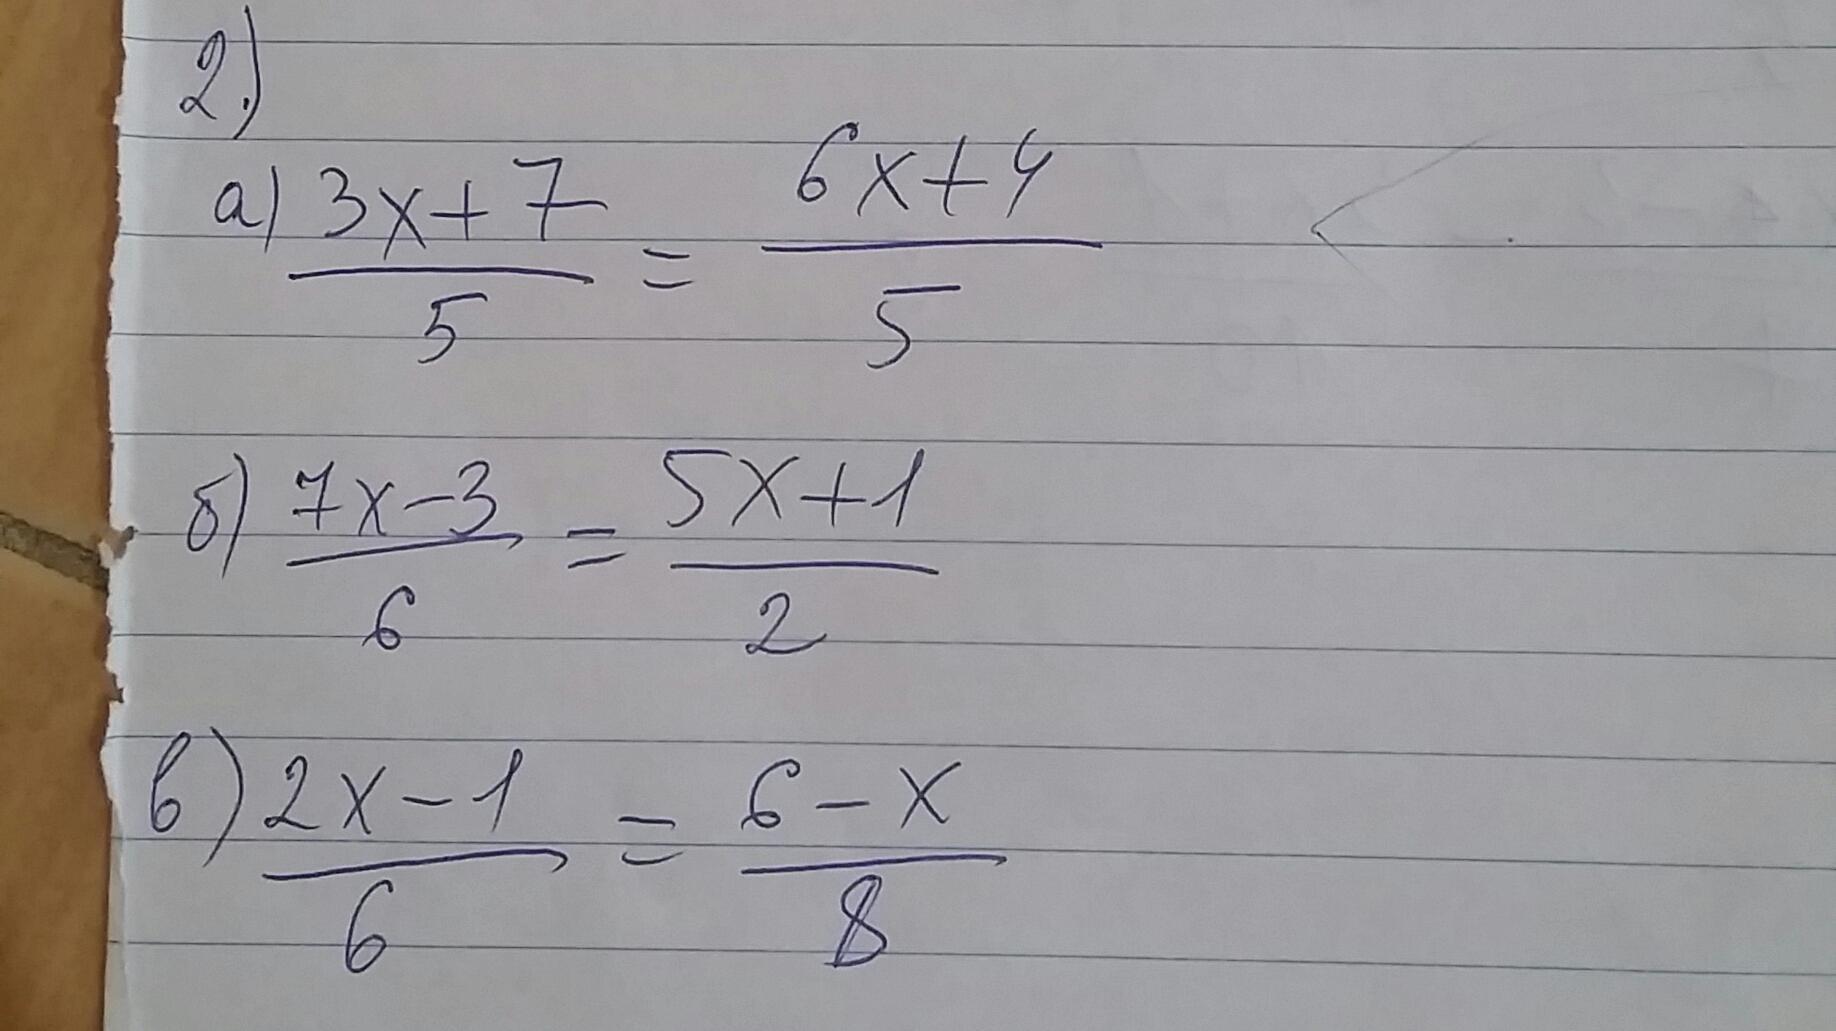 2.)
а) 3x+7/5 = 6x+4/5
б) 7x-3/6 = 5x+1/2
в) 2x-1/6 = 6-x/8